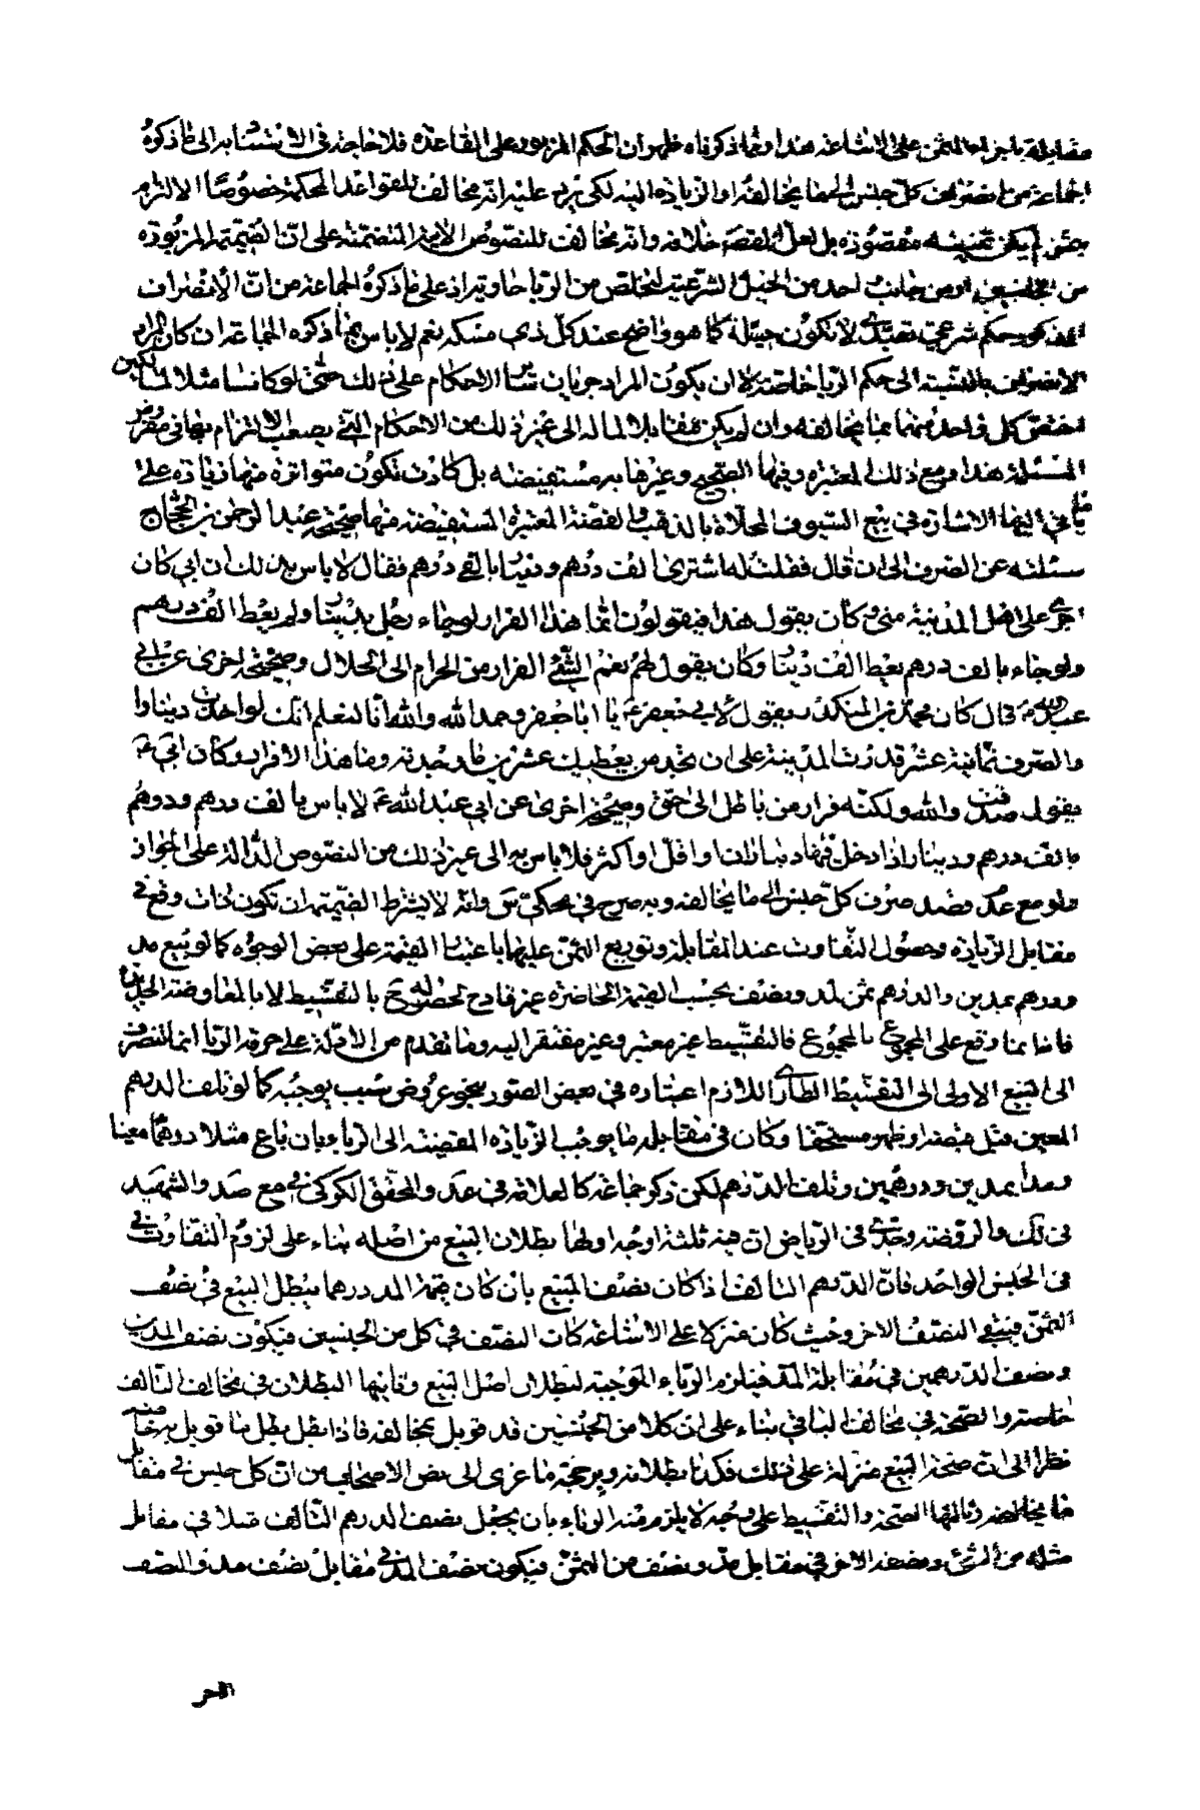 مقابلة باجزاء المثمن على الاشاعة هذا ومما ذكرناه ظهر ان الحكم المزبور على القاعدة فلا حاجة في الاستناد الى ما ذكره
الجماعة من انصراف كل جنس الى ما يخالفه او الزيادة اليه لكي يرد عليه انه مخالف للقواعد المحكمة خصوصا الالتزام
لم يكن مقصوده بل لعل القصد خلافه وانه مخالف للنصوص الآتية المتضمنة على ان القيمة المزبورة
من الجانبين او من جانب احد من الحيل الشرعية للتخلص من الربا على ما ذكره الجماعة من ان الانصراف
حكم شرعي تعبدي لا تكون حيلة كما هو واضح عند كل ذي مسكة نعم لا باس بما ذكره الجماعة ان كان المراد
الانصراف بالنسبة الى حكم الربا خاصة لا ان يكون المراد جريان سائر الاحكام على ذلك حتى لو كانا مثلا لمالكين
اختص كل واحد منهما بما يخالفه وان لم يكن مقابلا لماله الى غير ذلك من الاحكام التي يصعب الالتزام بها في مفروض
المسئلة هذا ومع ذلك المعتبرة وفيها الصحيح وغيرها به مستفيضة بل كادت تكون متواترة منها زيادة على
ما في اليها الاشارة في بيع السيوف المحلاة بالذهب والفضة المعتبرة المستفيضة منها صحيحة عبد الرحمن بن الحجاج
سئلته عن الصرف الى ان قال فقلت له اشتري الف درهم ودينارا بالفي درهم فقال لا باس بذلك ان ابي كان
اجرى على اهل المدينة مني وكان يقول هذا فيقولون انما هذا الفرار لو جاء رجل بدينار لم يعط الف درهم
ولو جاء بالف درهم لم يعط الف دينار وكان يقول لهم نعم الشئ الفرار من الحرام الى الحلال وصحيحة اخرى عن ابي
عبد الله ع قال كان محمد بن المنكدر يقول لابي جعفر ع يا ابا جعفر رحمك الله والله انا لنعلم انك لو اخذت دينارا
والصرف ثمانية عشر فدرت المدينة على ان تجد من يعطيك عشرين ما وجدته وما هذا الا فرار وكان ابي ع
يقول صدقت والله ولكنه فرار من باطل الى حق وصحيحة اخرى عن ابي عبد الله ع لا باس بالف درهم ودرهم
بالف درهم ودينارا اذا دخل فيها ديناران او اقل او اكثر فلا باس به الى غير ذلك من النصوص الدالة على الجواز
ولو مع عدم قصد صرف كل جنس الى ما يخالفه وبه صرح في محكي س وانه لا يشترط الضميمة ان تكون ذات وقع في
مقابل الزيادة وحصول التفاوت عند المقابلة وتوزيع الثمن عليهما باعتبار القيمة على بعض الوجوه كما لو بيع مد
ودرهم بمدين والدرهم ثمن لمد ونصف بحسب القيمة الحاضرة غير قادح لحصوله ح بالتقسيط لا بالمعاوضة الجارية
فانها وقع على المجموع بالمجموع فالتقسيط غير معتبر وغير مفتقر اليه وما تقدم من الادلة على حرمة الربا انما تنصرف
الى البيع الاولى الى التقسيط الطارئ اللازم اعتباره في بعض الصور بنحو عروض سبب يوجبه كما لو تلف الدرهم
المعين قبل قبضه او ظهر مستحقا وكان في مقابله ما يوجب الزيادة المفضية الى الربا وبان باع مثلا درهما معينا
ومدا بمدين ودرهمين وتلف الدرهم لكن ذكر جماعة كالعلامة في عد والمحقق الكركي في مع صد والشهيد
في لك والروضة وجدي في الرياض ان فيه ثلثة اوجه اولها بطلان البيع من اصله بناء على لزوم التفاوت في
في الجنس الواحد فان الدرهم التالف اذا كان نصف المبيع بان كان قيمة المد درهما يبطل البيع في نصف
الثمن فيبقى النصف الآخر وحيث كان منزلا على الاشاعة كان النصف في كل من الجنسين فيكون نصف المدين
ونصف الدرهمين في مقابلة المد فيلزم الرباء الموجبة لبطلان اصل البيع وثانيها البطلان في مخالف التالف
خاصة والصحة في مخالف الباقي بناء على ان كلا من الجنسين قد قوبل بمخالفه فاذا بطل بطل ما قوبل به خاصة
نظرا الى ان صحة البيع منزلة على ذلك فكذا بطلانه ويرجحه ما عزى الى بعض الاصحاب من ان كل جنس في مقابل
ما يخالفه وثالثها الصحة والتقسيط على وجه لا يلزم منه الرباء بان يجعل نصف الدرهم التالف مثلا في مقابل
مثله من الشئ ونصفه الآخر في مقابل مد ونصف من الثمن فيكون نصف المد في مقابل نصف مد والنصف
الآخر